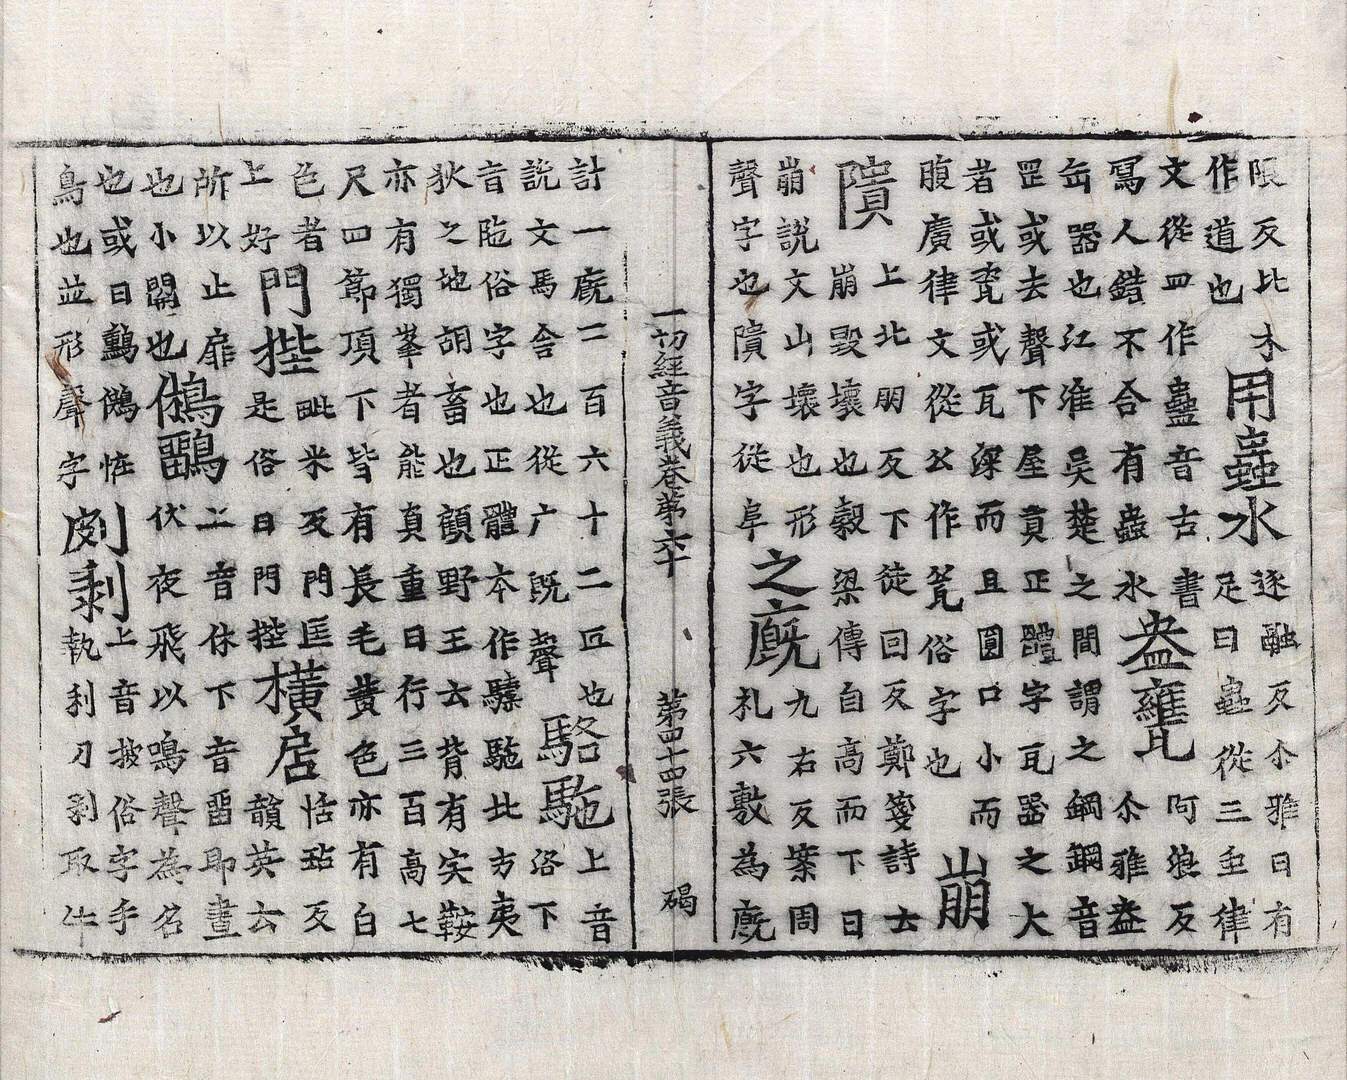 限反比末
作道也
用蟲水
逐融反尒雅曰有
足曰蟲從三虫律
文從皿作蠱音古書
寫人錯不合有蟲水
盎甕
阿浪反
尒雅盎
缶器也江淮吳楚之間謂之㼚㼚音
罡或去聲下屋貢正體字瓦器之大
者或瓷或瓦深而且圓口小而
腹廣律文從公作瓮俗字也
崩
隤
上北朋反下徒回反鄭箋詩云
崩毀壞也穀梁傳自高而下曰
崩說文山壞也形
聲字也隤字從阜
之廄
九右反案周
札六敷為廄
一切經音義卷第六十 第四十四張 碣
計一廄二百六十二匹也
說文馬舍也從广既聲
駱駞
上音
洛下
音陁俗字也正體本作驝駞北方夷
狄之地胡畜也顧野王云背有宍鞍
亦有獨峯者能負重日行三百高七
尺四節項下皆有長毛黃色亦有白
色者
上好
門梐
毗米反門匡
是俗曰門梐
橫扂
恬玷反
韻英云
所以止扉
也小關也
鵂鶹
二音休下音留即晝
伏夜飛以鳴聲為名
也或曰鵂怪
鳥也並形聲字
㓟剥
上音披俗字手
執利刀剥取牛